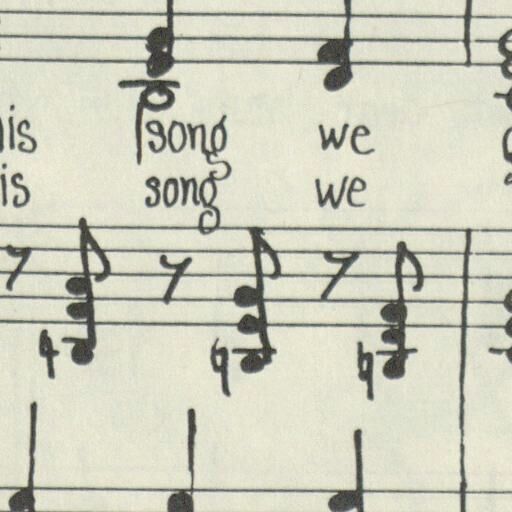 is song we
is song we